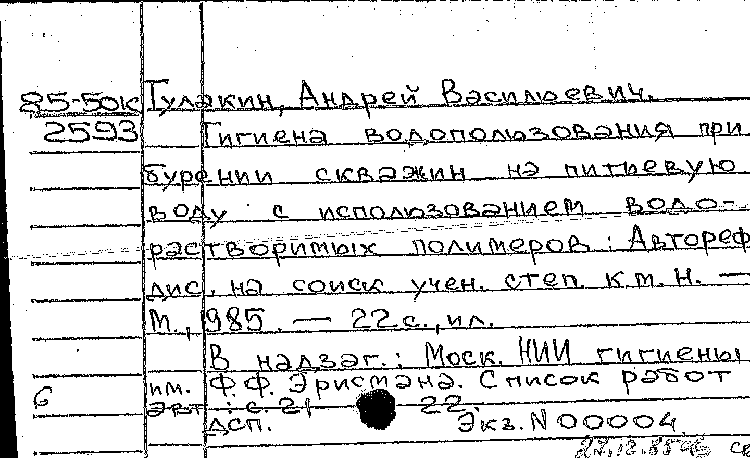 85-50к Гулакин, Андрей Васильевич.
2593 Гигиена водопользования при
бурении скважин на питьевую
воду с использованием водо-
растворимых полимеров : Автореф
дис. на соиск учен. степ. к.м.н. —
М., 1985. — 22 с., ил.
В надзаг.: Моск. НИИ гигиены
6 им. Ф.Ф. Эрисмана. Список работ
авт.: с. 21 22.
ДСП. Экз. N 00004